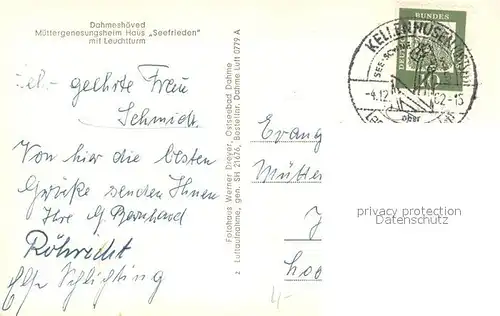 Dahmeshöved
Müttergenesungsheim Haus „Seefrieden"
mit Leuchtturm
Sehr geehrte Frau
Schmidt
Von hier die besten
Grüße senden Ihnen
Ihre G. Bernhard
Röhricht
Else Schlichting
Fotohaus Werner Dreyer, Ostseebad Dahme
Luftaufnahme, gen. SH 21676, Bestellnr. Dahme Luft 0779 A
DEUTSCHE
BUNDES
KELLENHUSEN
-4.12. 62-15
Evang
Mütte
privacy protection
Datenschutz
4-